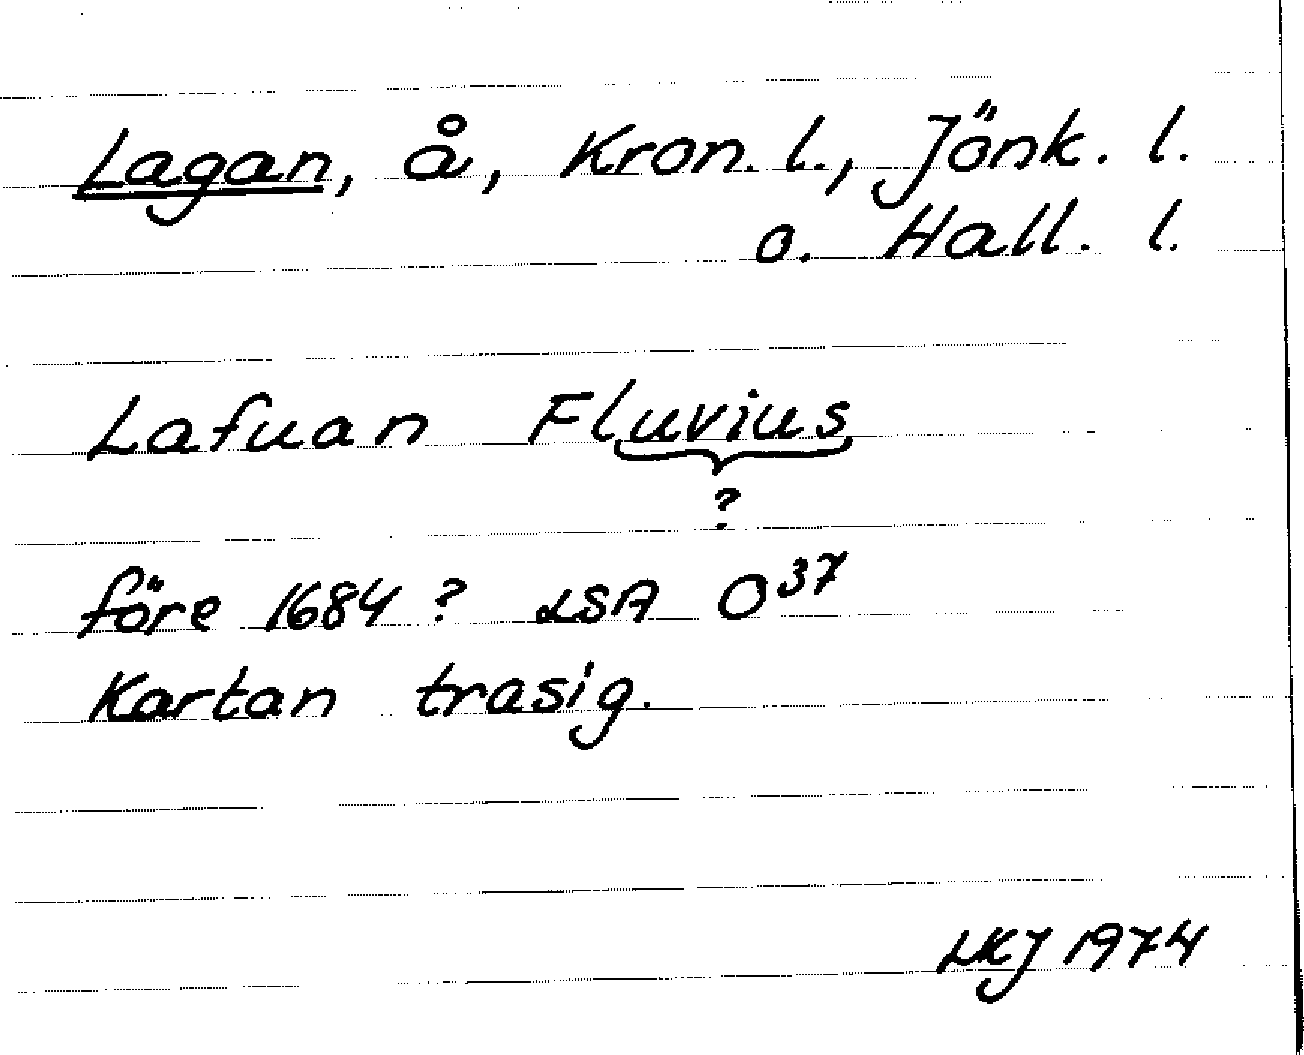 Lagan, å, Kron. l., Jönk. l.
o. Hall. l.
Lafuan Fluvius
?
före 1684 ? LSA O37
Kartan trasig.
LKJ 1974